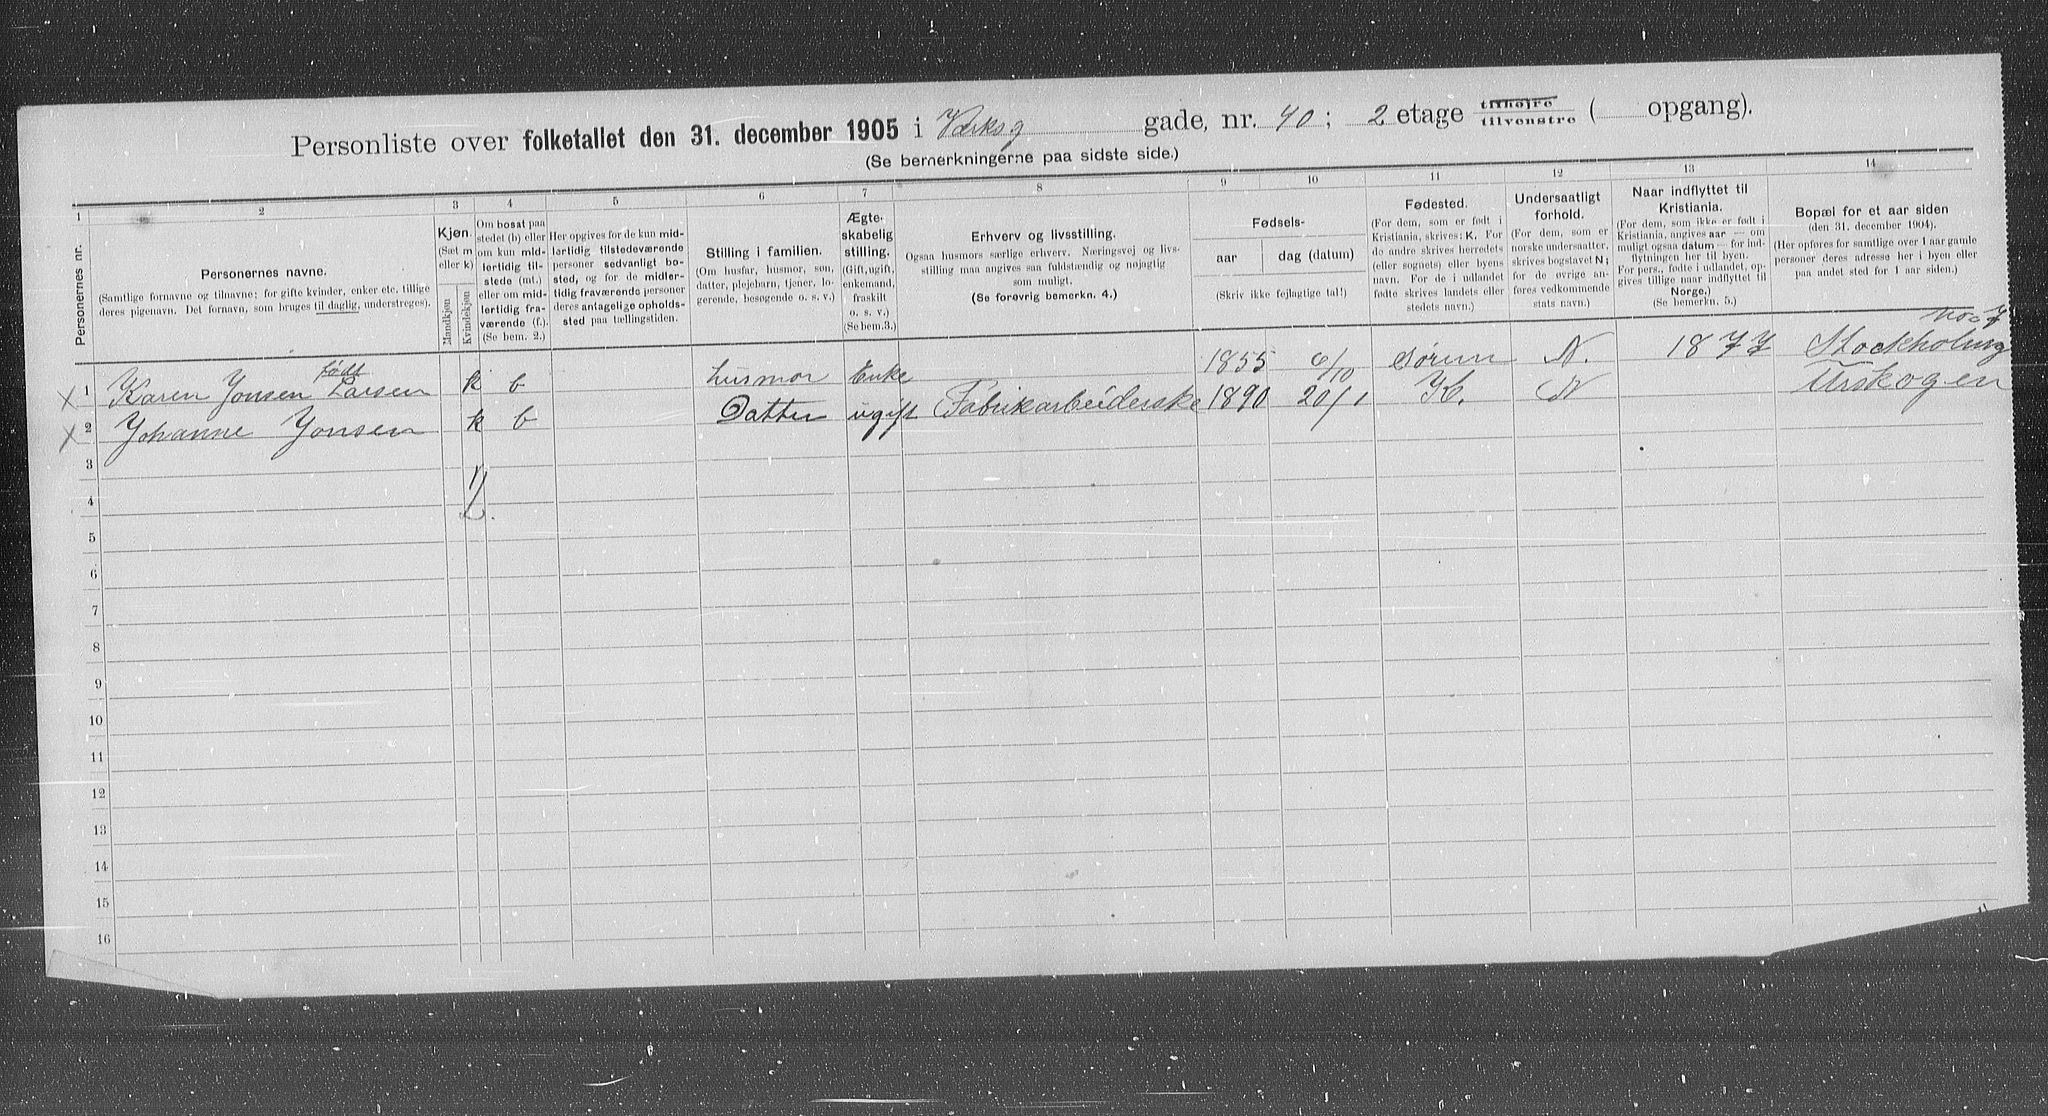 Personliste over folketallet den 31. december 1905 i Verksg gade, nr. 40; 2 etage tilhøjre tilvenstre ( opgang).
(Se bemerkningerne paa sidste side.)
1 2 3 4 5 6 7 8 9 10 11 12 13 14
Personernes nr.
Personernes navne.
(Samtlige fornavne og tilnavne; for gifte kvinder, enker etc. tillige
deres pigenavn. Det fornavn, som bruges til daglig, understreges).
Kjøn.
(Sæt m
eller k)
Mandkjøn
Kvindekjøn
Om bosat paa
stedet (b) eller
om kun mid-
lertidig til-
stede (mt.)
eller om mid-
lertidig fra-
værende (f.).
(Se bem. 2.)
Her opgives for de kun mid-
lertidig tilstedeværende
personer sedvanligt bo-
sted, og for de midler-
tidig fraværende personer
deres antagelige opholds-
sted paa tællingstiden.
Stilling i familien.
(Om husfar, husmor, søn,
datter, plejebarn, tjener, lo-
gerende, besøgende o. s. v.)
Ægte-
skabelig
stilling.
(Gift, ugift,
enkemand,
fraskilt
o. s. v.)
(Se bem. 3.)
Erhverv og livsstilling.
Ogsaa husmors særlige erhverv. Næringsvej og livs-
stilling maa angives saa fuldstændig og nøjagtig
som muligt.
(Se forøvrig bemerkn. 4.)
Fødsels-
aar
dag (datum)
(Skriv ikke fejlagtige tal!)
Fødested.
(For dem, som er født i
Kristiania, skrives: K. For
de andre skrives herredets
(eller sognets) eller byens
navn. For de i udlandet
fødte skrives landets eller
stedets navn.)
Undersaatligt
forhold.
(For dem, som er
norske undersaatter,
skrives bogstavet N;
for de øvrige an-
føres vedkommende
stats navn.)
Naar indflyttet til
Kristiania.
(For dem, som ikke er født i
Kristiania, angives aar — om
muligt ogsaa datum — for ind-
flytningen her til byen.
For pers., fødte i udlandet, op-
gives tillige naar indflyttet til
Norge.)
(Se bemerkn. 5.)
Bopæl for et aar siden
(den 31. december 1904).
(Her opføres for samtlige over 1 aar gamle
personer deres adresse her i byen eller
paa andet sted for 1 aar siden.)
født
x 1 Karen Jonsen Larsen k b husmor Enke 1855 6/10 Sørum N. 1877 Stockholmg
x 2 Johanne Jonsen k b Datter ugift Fabrikarbeiderske 1890 20/1 K. N Urskogen
3
4
5
6
7
8
9
10
11
12
13
14
15
16